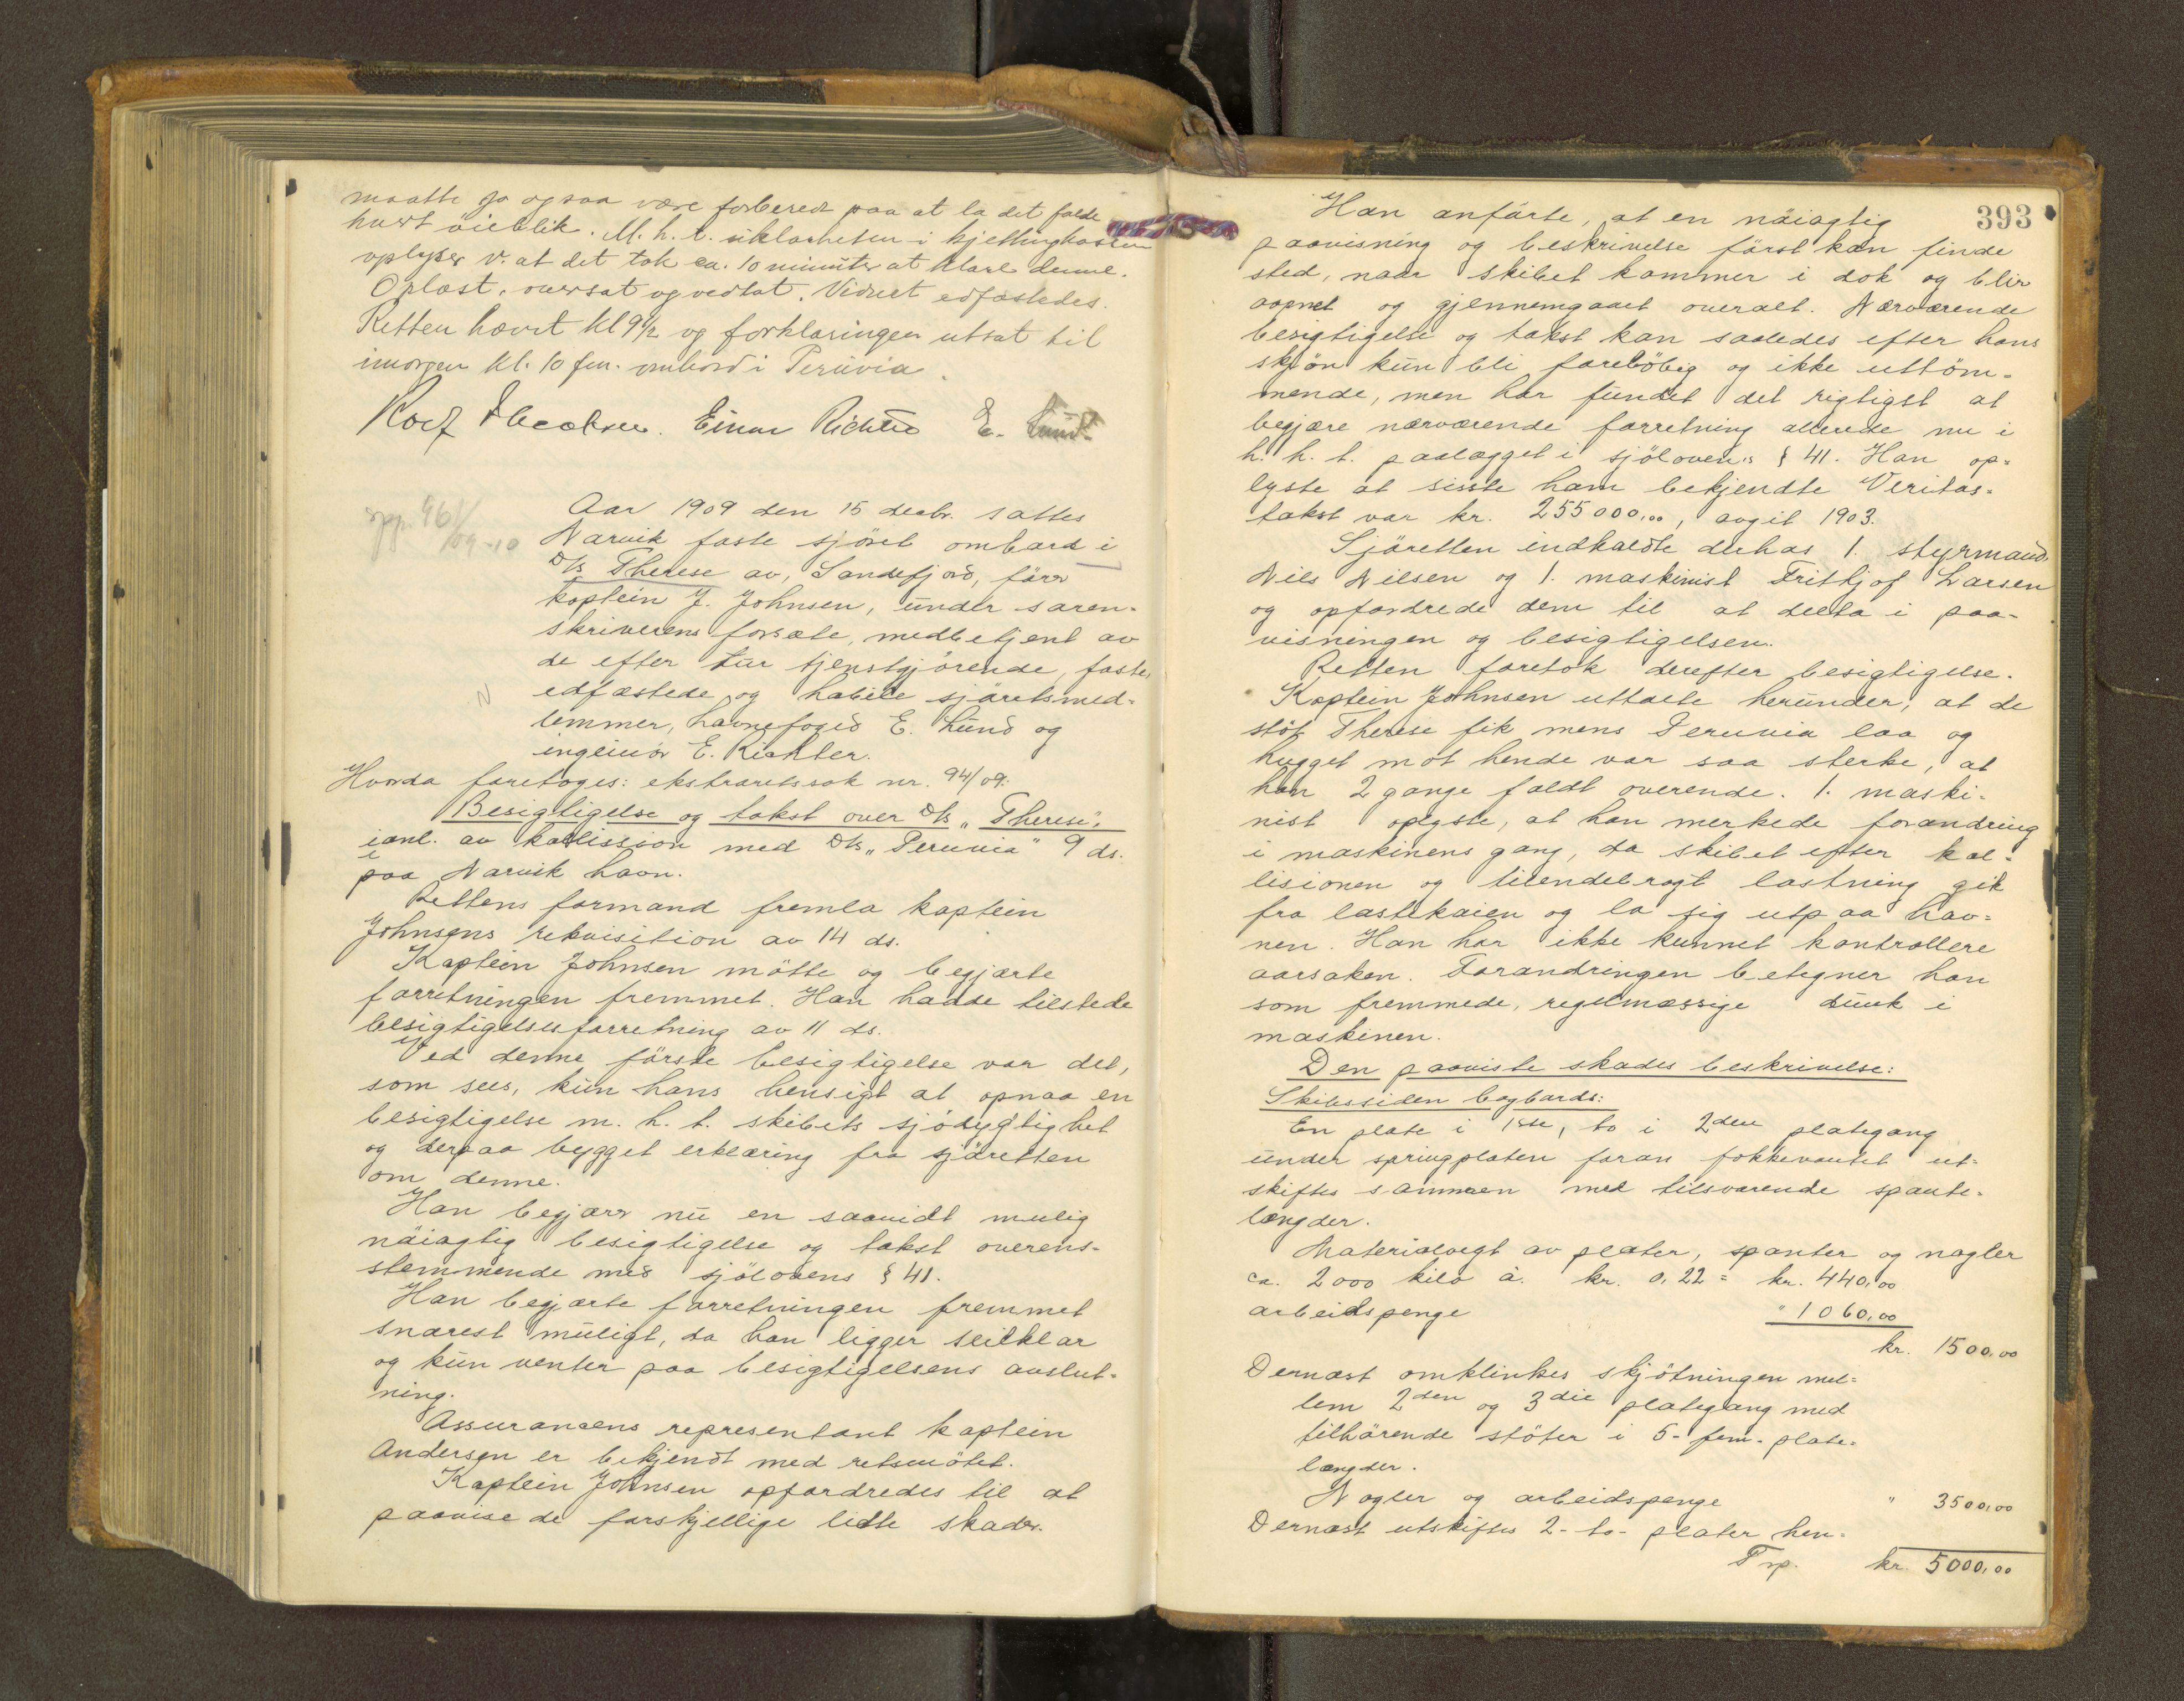 maatte jo ogsaa være forberedt paa at la det falde
hvert öieblik. M. h. t. uklarheten i kjettingkassen
oplyser v. at det tok ca. 10 minuter at klare denne.
Oplæst, oversat og vedtat. Vidnet edfæstedes.
Retten hævet kl 9½ og forklaringen utsat til
imorgen kl. 10 fm. ombord i Peruvia.
Einar Richter E. Lund
Aar 1909 den 15 decbr. sattes
Narvik faste sjöret ombord i
D/s Therese av, Sandefjord, förer
kaptein J. Johnsen, under soren-
skriverens forsæte, medbetjent av
de efter tur tjenstgjörende, faste,
edfæstede og habile sjöretsmed-
lemmer, havnefoged E. Lund og
ingeniör E. Richter.
Hvorda foretoges: ekstraretssak nr. 94/09:
Besigtigelse og takst over D/s „Therese",
i anl. av kollission med D/s „Peruvia" 9 ds.
paa Narvik havn.
Rettens formand fremla kaptein
Johnsens rekvisition av 14 ds.
Kaptein Johnsen mötte og begjærte
forretningen fremmet. Han hadde tilstede
besigtigelsesforretning av 11 ds.
Ved denne förste besigtigelse var det,
som sees, kun hans hensigt at opnaa en
besigtigelse m. h. t. skibets sjödygtighet
og derpaa bygget erklæring fra sjöretten
om denne.
Han begjærer nu en saavidt mulig
nöiagtig besigtigelse og takst overens-
stemmende med sjölovens § 41.
Han begjærte forretningen fremmet
snarest muligt, da han ligger seilklar
og kun venter paa besigtigelsens avslut-
ning.
Assuransens representant kaptein
Andersen er bekjendt med retsmötet.
Kaptein Johnsen opfordredes til at
paavise de forskjellige lidte skader.
393
Han anförte, at en nöiagtig
paavisning og beskrivelse först kan finde
sted, naar skibet kommer i dok og blir
aapnet og gjennemgaaet overalt. Nærværende
besigtigelse og takst kan saaledes efter hans
skjön kun bli forelöbig og ikke uttöm-
mende, men har fundet det rigtigst at
begjære nærværende forretning allerede nu i
h. h. t. paalægget i sjölovens § 41. Han op-
lyste at sisste ham bekjendte Veritas-
takst var kr. 255000,00, avgit 1903.
Sjöretten indkaldte derhos 1. styrmand
Nils Nilsen og 1. maskinist Fritjof Larsen
og opfordrede dem til at delta i paa-
visningen og besigtigelsen.
Retten foretok derefter besigtigelse.
Kaptein Johnsen uttalte herunder, at de
stöt Therese fik mens Peruvia laa og
hugget mot hende var saa sterke, at
han 2 gange faldt overende. 1. maski-
nist oplyste, at han merkede forandring
i maskinens gang, da skibet efter kol-
lisionen og tilendebragt lastning gik
fra lastekaien og la sig ut paa hav-
nen. Han har ikke kunnet kontrollere
aarsaken. Forandringen betegner han
som fremmede, regelmæssige dunk i
maskinen.
Den paaviste skades beskrivelse:
Skibssiden bagbords:
En plate i 1ste, to i 2den plategang
under springplaten foran fokkevantet ut-
skiftes sammen med tilsvarende spante-
længder.
Materialvegt av plater, spanter og nagler
ca. 2000 kilo à. kr. 0,22 = kr. 440,00
arbeidspenge " 1060,00
kr. 1500,00
Dernæst omklinkes skjötningen mel-
lem 2den og 3die plategang med
tilhörende stöter i 5- fem- plate-
længder.
Nagler og arbeidspenge " 3500,00
Dernæst utskiftes 2- to- plater hen-
Trp. kr. 5000,00